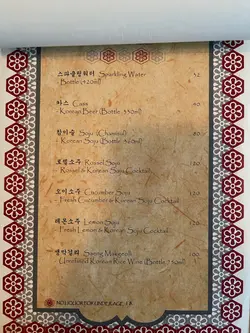 스파클링워터 Sparkling Water 32
- Bottle (420ml)
카스 Cass 40
- Korean Beer (Bottle 330ml)
참이슬 Soju (Chamisul) 80
- Korean Soju (Bottle 360ml)
로얄소주 Royal Soju 150
- Royal & Korean Soju Cocktail
오이소주 Cucumber Soju
- Fresh Cucumber & Korean Soju Cocktail
레몬소주 Lemon Soju 120
- Fresh Lemon & Korean Soju Cocktail
생막걸리 Saeng Makgeolli 100
- Unrefined Korean Rice Wine (Bottle 750ml)
NO LIQUOR FOR UNDER AGE 18